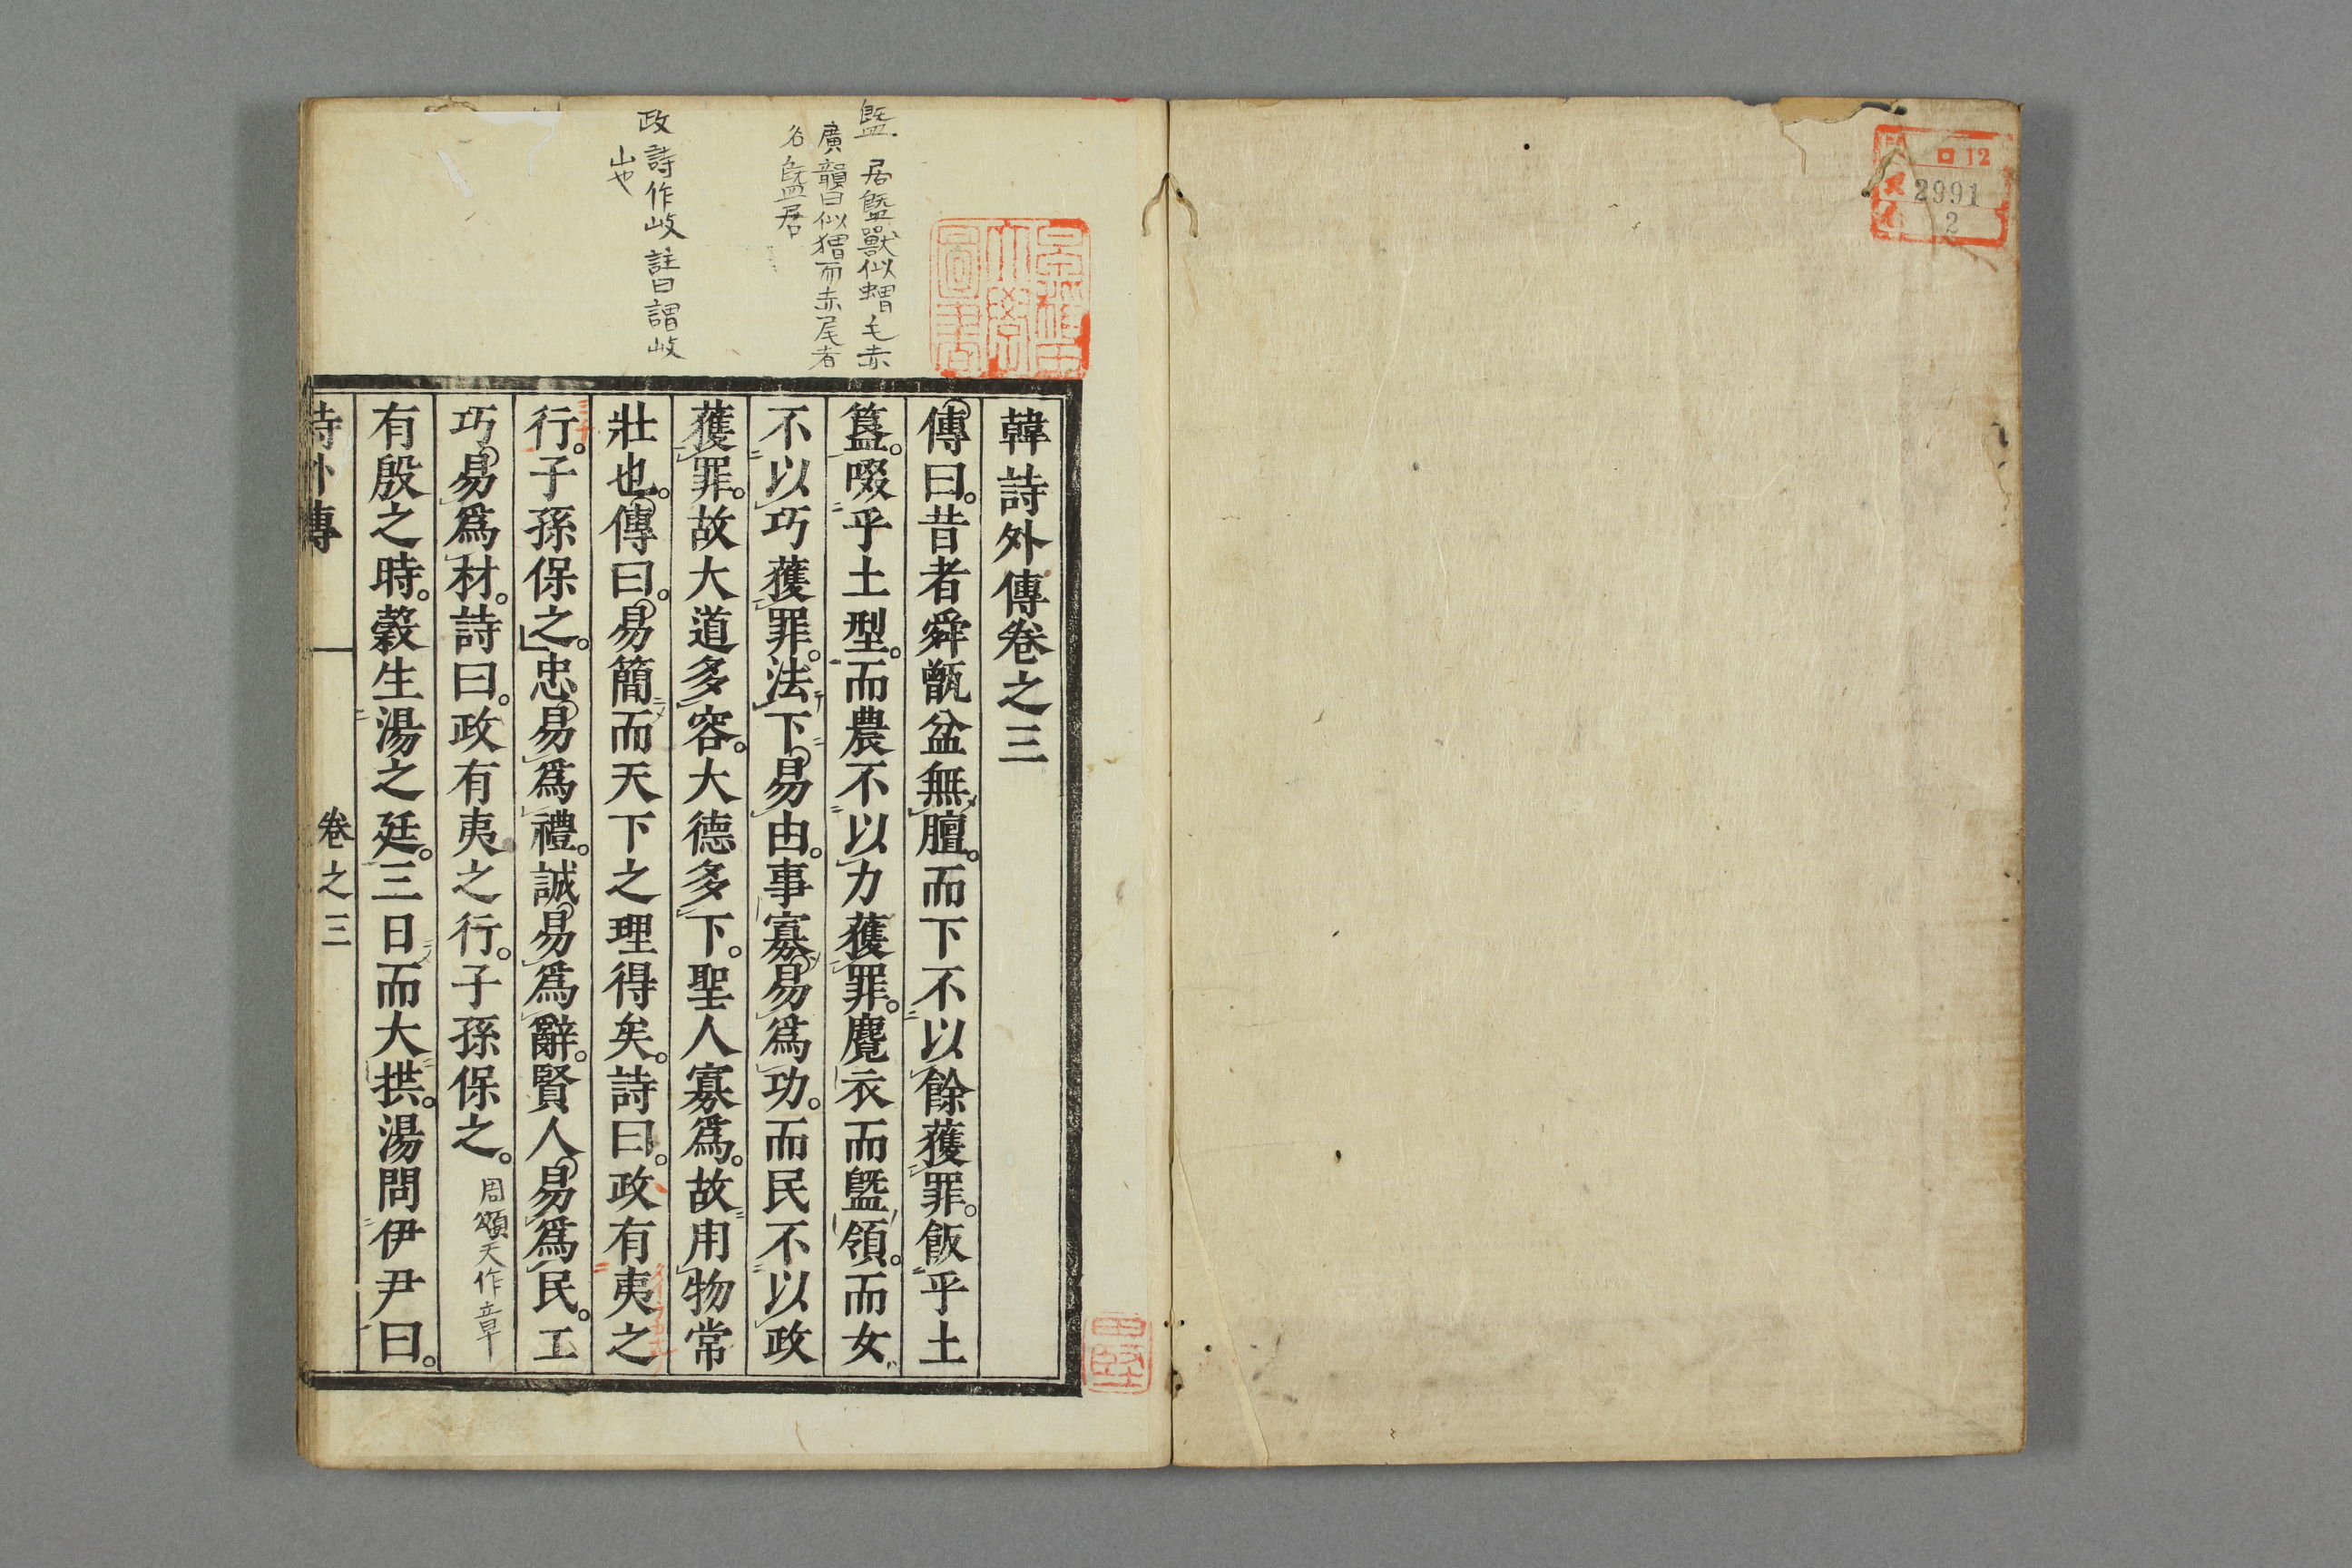 ロ 12
2991
2
𥂔 居𥂔獸似蝟毛赤
廣韻曰似猬而赤尾者
名𥂔居
政 詩作岐註曰謂岐
山也
韓詩外傳卷之三
傳曰。昔者舜甑盆無膻。而下不以餘獲罪。飯乎土
簋。啜乎土型。而農不以力獲罪。麑衣而𥂔領。而女
不以巧獲罪。法下易由。事寡易爲功。而民不以政
獲罪。故大道多容。大德多下。聖人寡爲。故用物常
壯也。傳曰。易簡而天下之理得矣。詩曰。政有夷之
行。子孫保之。忠易爲禮。誠易爲辭。賢人易爲民。工
巧易爲材。詩曰。政有夷之行。子孫保之。周頌天作章
有殷之時。穀生湯之廷。三日而大拱。湯問伊尹曰。
詩外傳 一 卷之三